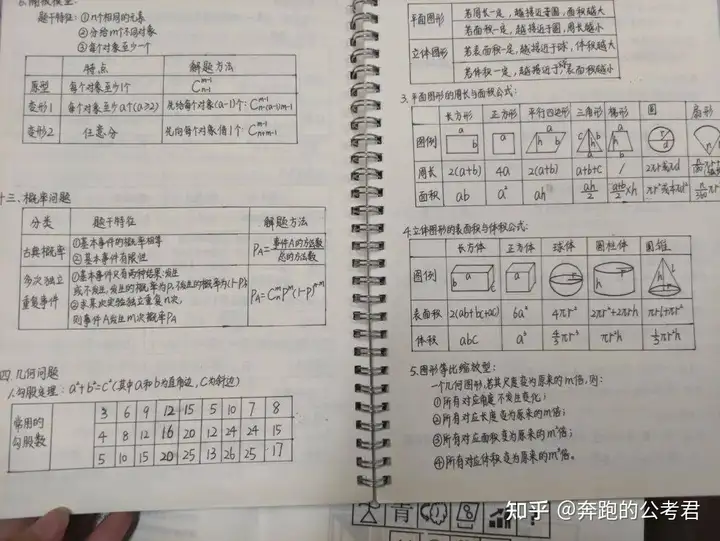 题干特征：①n个相同的元素
②分给m个不同对象
③每个对象至少一个
特点 解题方法
原型 每个对象至少1个 C_{n-1}^{m-1}
变形1 每个对象至少a个(a≥2) 先给每个对象(a-1)个：C_{n-(a-1)m-1}^{m-1}
变形2 任意分 先向每个对象借1个：C_{n+m-1}^{m-1}
十三、概率问题
分类 题干特征 解题方法
古典概率 ①基本事件的概率相等
②基本事件有限但
P_A=事件A的方法数/总的方法数
多次独立
重复事件
①基本事件只有两种结果：发生
或不发生，发生的概率为P，不发生的概率为(1-P)；
②求某次实验独立重复n次，
则事件A发生m次概率P_A
P_A=C_n^m P^m(1-P)^{n-m}
四、几何问题
1.勾股定理：a²+b²=c²(其中a和b为直角边，C为斜边)
常用的
勾股数
3 6 9 12 15 5 10 7 8
4 8 12 16 20 12 24 24 15
5 10 15 20 25 13 26 25 17
平面图形 若周长一定，越接近于圆，面积越大
若面积一定，越接近于圆，周长越小
立体图形 若表面积一定，越接近于球，体积越大
若体积一定，越接近于球，表面积越小
3.平面图形的周长与面积公式：
长方形 正方形 平行四边形 三角形 梯形 圆 扇形
图例 a b a a h b c h b a a h b r d r
周长 2(a+b) 4a 2(a+b) a+b+c / 2πr或πd
面积 ab a² ah ah/2 (a+b)/2×h
4.立体图形的表面积与体积公式：
长方体 正方体 球体 圆柱体 圆锥
图例 b a c a r h r h l r
表面积 2(ab+bc+ac) 6a² 4πr² 2πr²+2πrh πrl+πr²
体积 abc a³ 4/3πr³ πr²h 1/3πr²h
5.图形等比缩放型：
一个几何图形，若其尺度变为原来的m倍，则：
①所有对应角度不发生变化；
②所有对应长度变为原来的m倍；
③所有对应面积变为原来的m²倍；
④所有对应体积变为原来的m³倍。
青
8
?
知乎 @奔跑的公考君